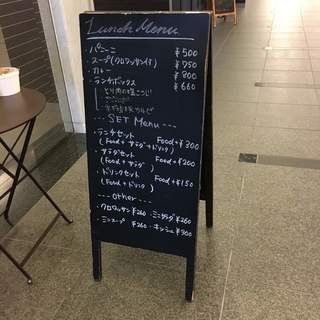 Lunch Menu
・パニーニ ¥500
・スープ(クロワッサン付) ¥750
・カレー ¥800
・ランチボックス ¥660
--- SET Menu ---
・ランチセット Food+¥300
(Food+サラダ+ドリンク)
・サラダセット Food+¥200
(Food+サラダ)
・ドリンクセット Food+¥150
(Food+ドリンク)
--- other ---
・クロワッサン¥260 ・ミニサラダ¥260
・ミニスープ ¥260 ・キッシュ¥300